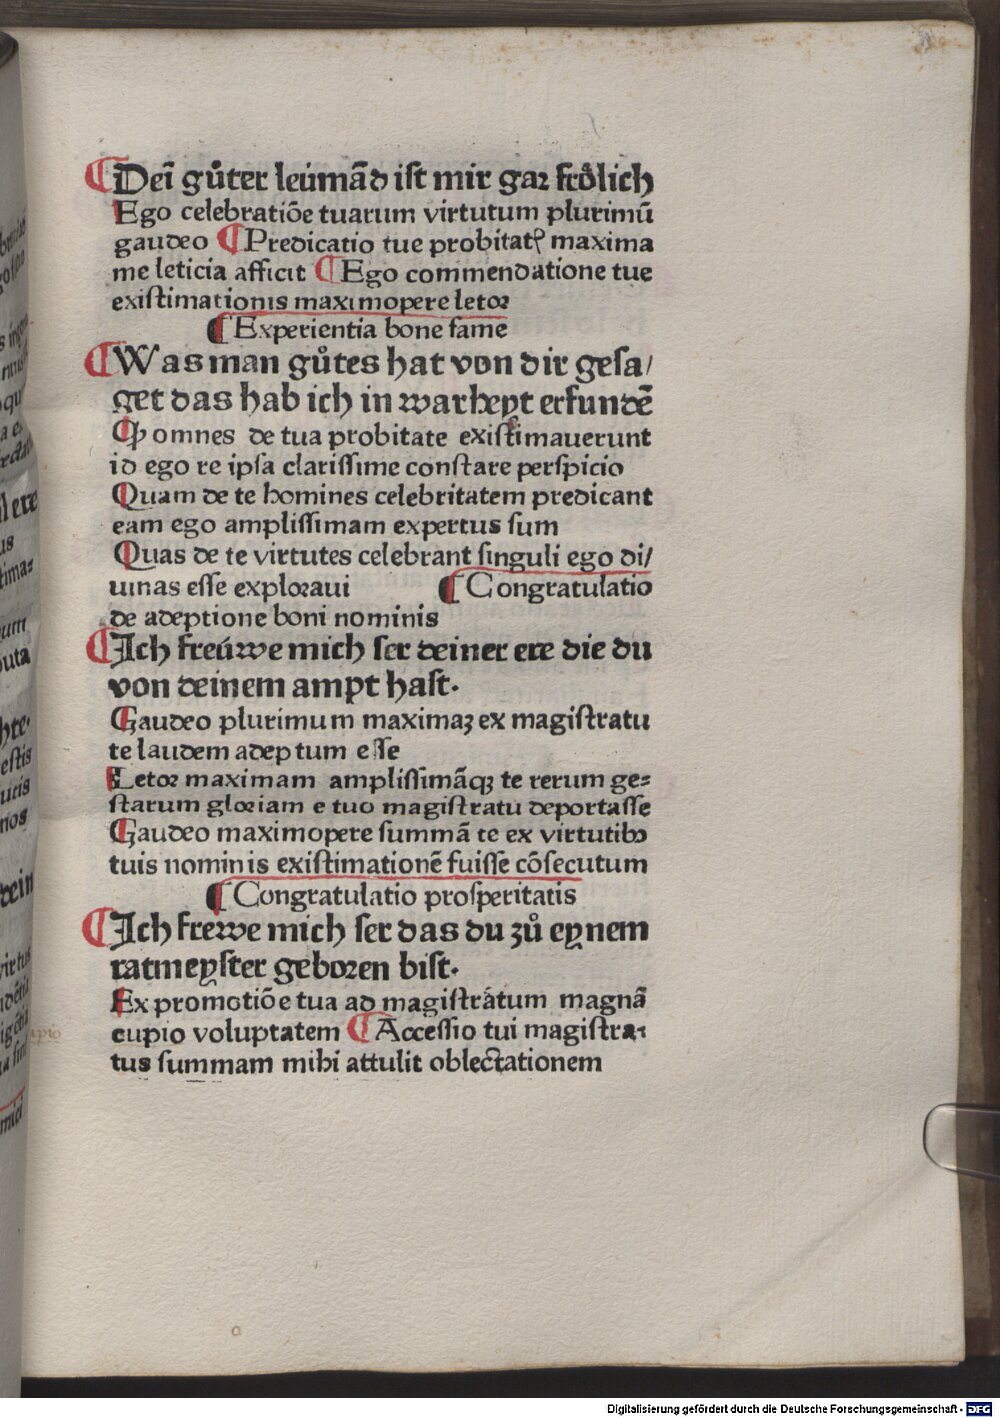 ¶Deī gůter leümād ist mir gar frőlich
Ego celebratiōe tuarum virtutum plurimū
gaudeo ¶Predicatio tue probitatꝭ maxima
me leticia afficit ¶Ego commendatione tue
existimationis maximopere letor
¶Experientia bone fame
¶Was man gůtes hat von dir gesa/
get das hab ich in warheyt erfundē
Qꝓ omnes de tua probitate existimauerunt
id ego re ipsa clarissime constare perspicio
Quam de te homines celebritatem predicant
eam ego amplissimam expertus sum
Quas de te virtutes celebrant singuli ego di/
uinas esse exploraui ¶Congratulatio
de adeptione boni nominis
¶Ich freúwe mich ser deiner ere die du
von deinem ampt hast.
Gaudeo plurimum maximaꝫ ex magistratu
te laudem adeptum esse
Letor maximam amplissimāqꝫ te rerum ge⸗
starum gloriam e tuo magistratu deportasse
Gaudeo maximopere summā te ex virtutibꝰ
tuis nominis existimationē fuisse cōsecutum
¶Congratulatio prosperitatis
¶Ich frewe mich ser das du zů eynem
ratmeyster geboren bist.
Ex promotiōe tua ad magistrátum magnā
cupio voluptatem ¶Accessio tui magistra⸗
tus summam mihi attulit oblectationem
Digitalisierung gefördert durch die Deutsche Forschungsgemeinschaft - DFG